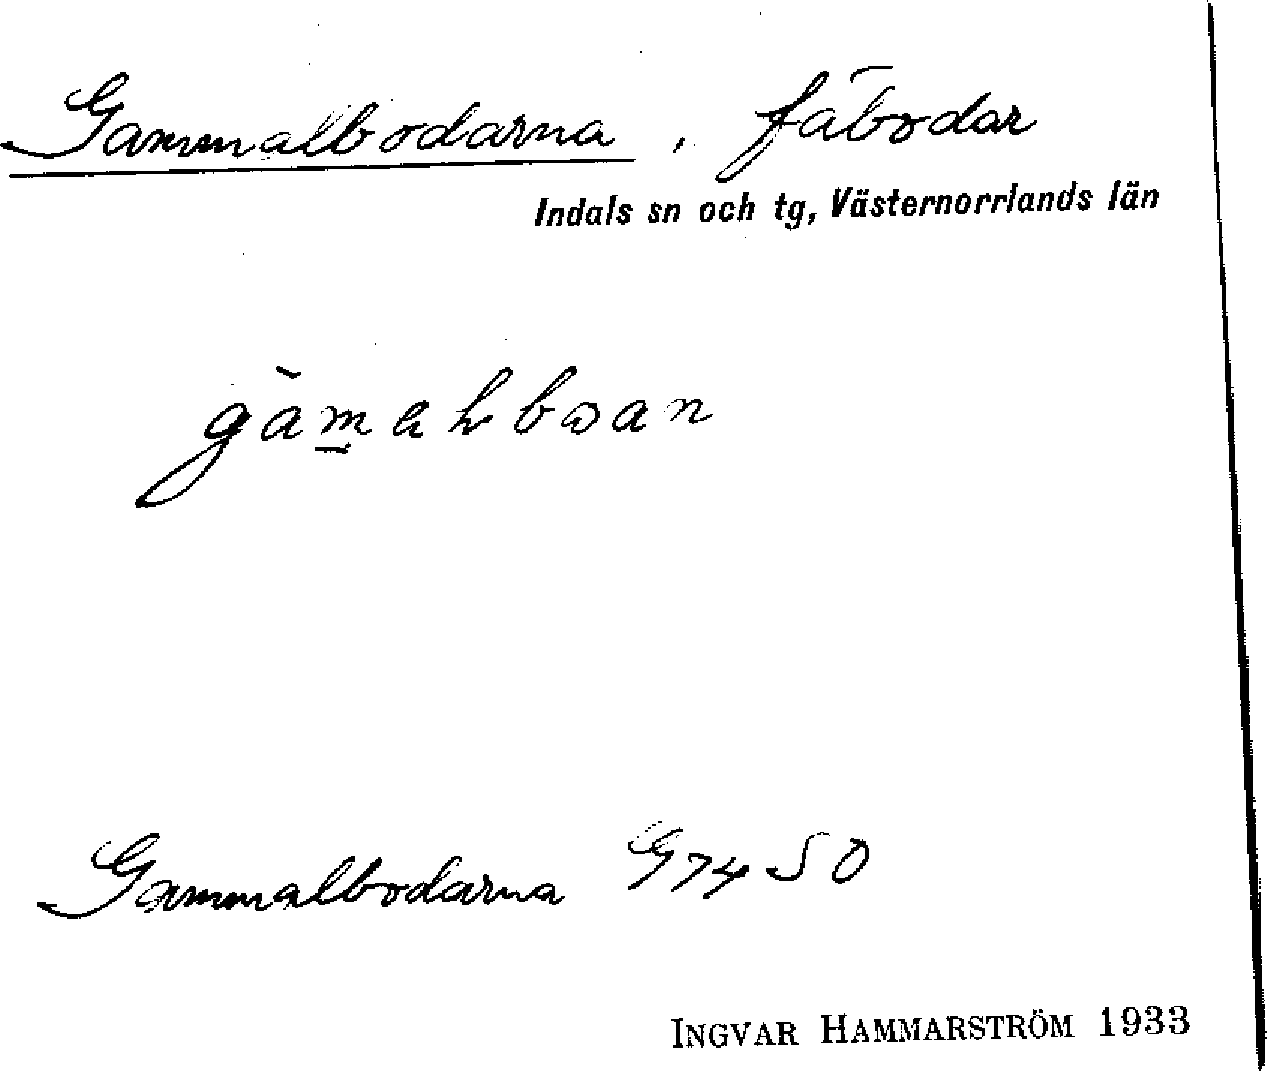 Gammalbodarna, fäbodar
Indals sn och tg, Västernorrlands län
Gammalbodarna G74 SO
INGVAR HAMMARSTRÖM 1933